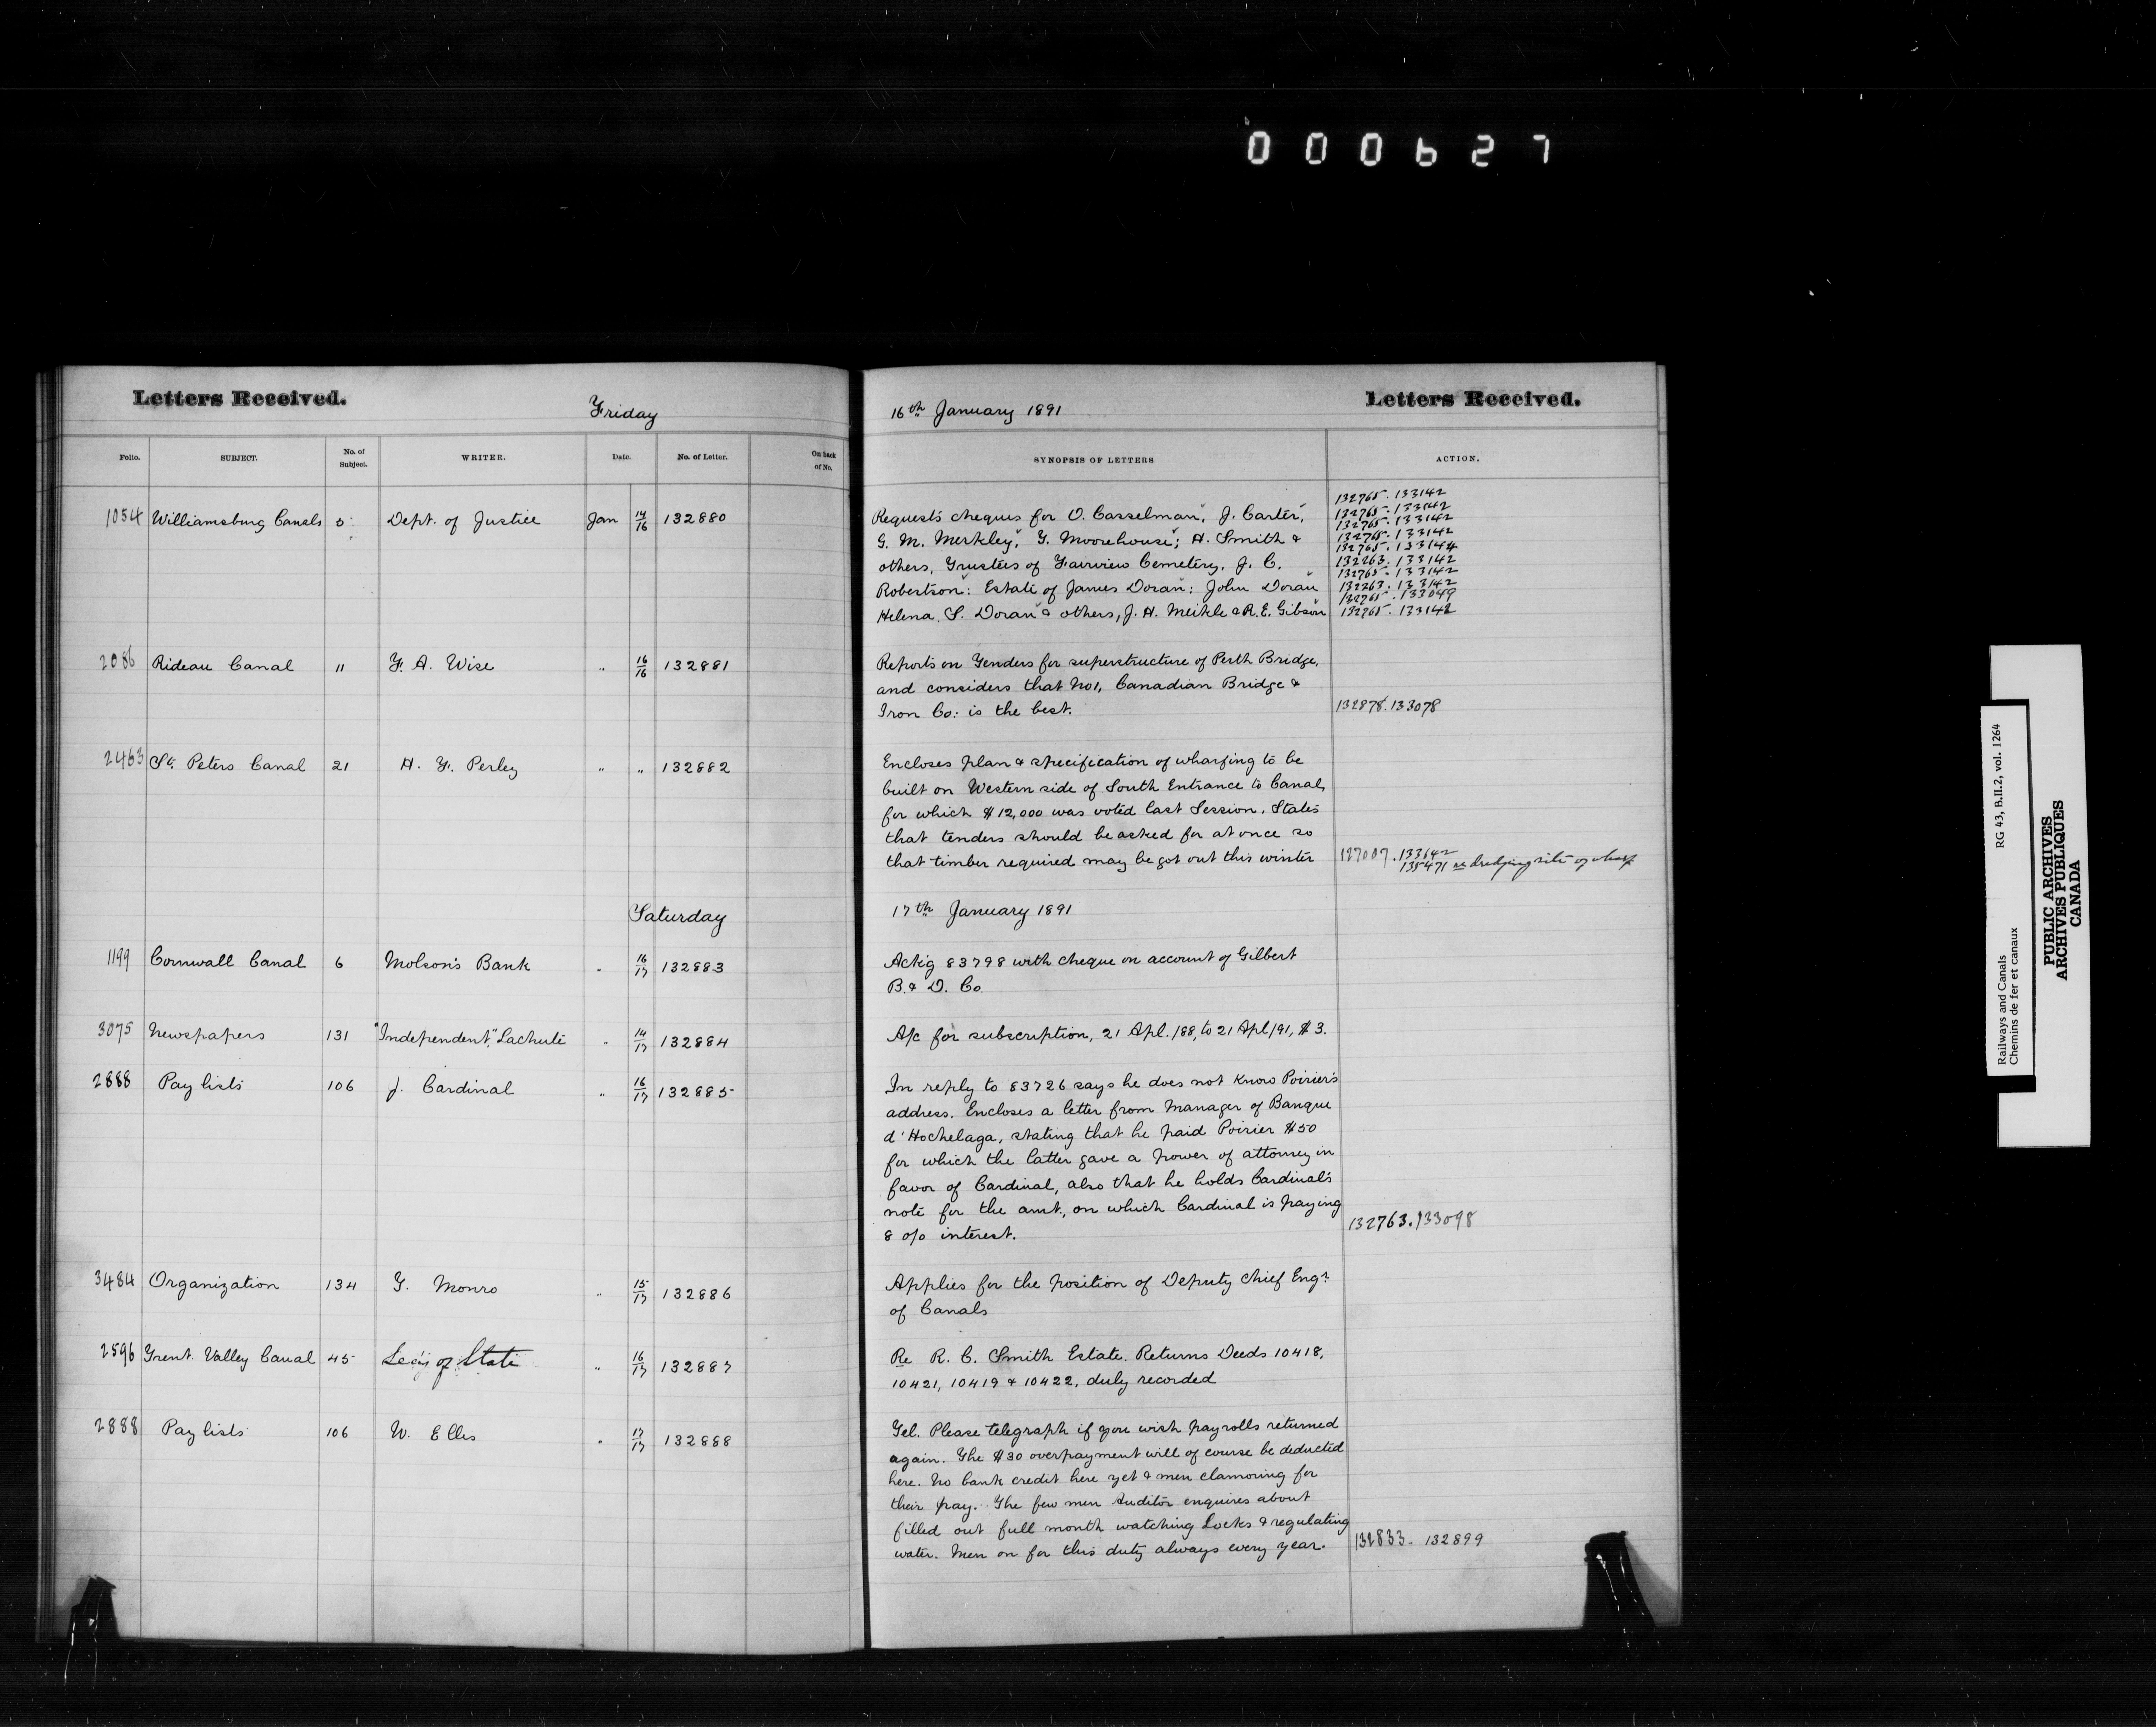 000627
Letters Received.
Friday
16th January 1891
Letters Received.
Folio. SUBJECT. No. of Subject. WRITER. Date. No. of Letter. On back of No. SYNOPSIS OF LETTERS ACTION.
1054 Williamsburg Canals 5 Dept. of Justice Jan 14/16 132880
Requests cheques for O. Casselman, J. Carter,
G. M. Merkley, G. Moorehouse; H. Smith &
others, Trustees of Fairview Cemetery, J. C.
Robertson: Estate of James Doran: John Doran
Helena S. Doran & others, J. H. Meikle & R. E. Gibson
132765. 133142
132765. 133142
132765. 133142
132765. 133142
132765. 133144
132263. 133142
132765. 133142
132263. 133142
132765. 133049
132765. 133142
2086 Rideau Canal 11 F. A. Wise " 16/16 132881
Reports on Tenders for superstructure of Perth Bridge,
and considers that No 1, Canadian Bridge &
Iron Co: is the best.
132878. 133078
2463 St. Peters Canal 21 H. F. Perley " " 132882
Encloses plan & specification of wharfing to be
built on Western side of South Entrance to Canal,
for which $12,000 was voted last Session. States
that tenders should be asked for at once so
that timber required may be got out this winter
127007. 133142
135471 re dredging site of wharf
Saturday
17th January 1891
1199 Cornwall Canal 6 Molson's Bank " 16/17 132883
Ackg 83798 with cheque on account of Gilbert
B. & D. Co.
3075 Newspapers 131 "Independent," Lachute " 14/17 132884
A/c for subscription, 21 Apl. /88, to 21 Apl/91, $3.
2888 Pay lists 106 J. Cardinal " 16/17 132885
In reply to 83726 says he does not know Poirier's
address. Encloses a letter from Manager of Banque
d'Hochelaga, stating that he paid Poirier $50
for which the latter gave a power of attorney in
favor of Cardinal, also that he holds Cardinal's
note for the amt., on which Cardinal is paying
8 o/o interest.
132763. 133098
3484 Organization 134 T. Monro " 15/17 132886
Applies for the position of Deputy Chief Engr.
of Canals
2596 Trent Valley Canal 45 Secy of State " 16/17 132887
Re R. C. Smith Estate. Returns Deeds 10418,
10421, 10419 & 10422, duly recorded
2888 Pay lists 106 W. Ellis " 17/17 132888
Tel. Please telegraph if you wish payrolls returned
again. The $30 overpayment will of course be deducted
here. No bank credit here yet & men clamoring for
their pay. The few men Auditor enquires about
filled out full month watching Locks & regulating
water. Men on for this duty always every year.
132833. 132899
Railways and Canals RG 43, B.II.2, vol. 1264
Chemins de fer et canaux
PUBLIC ARCHIVES
ARCHIVES PUBLIQUES
CANADA